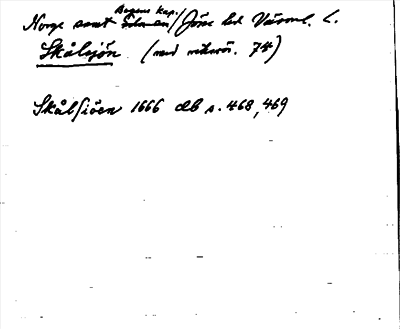 Bogens kap.
Norge samt /Jösse hd Värml. L.
Skålsjön (med 74)
Skålsiöen 1666 db s. 468, 469